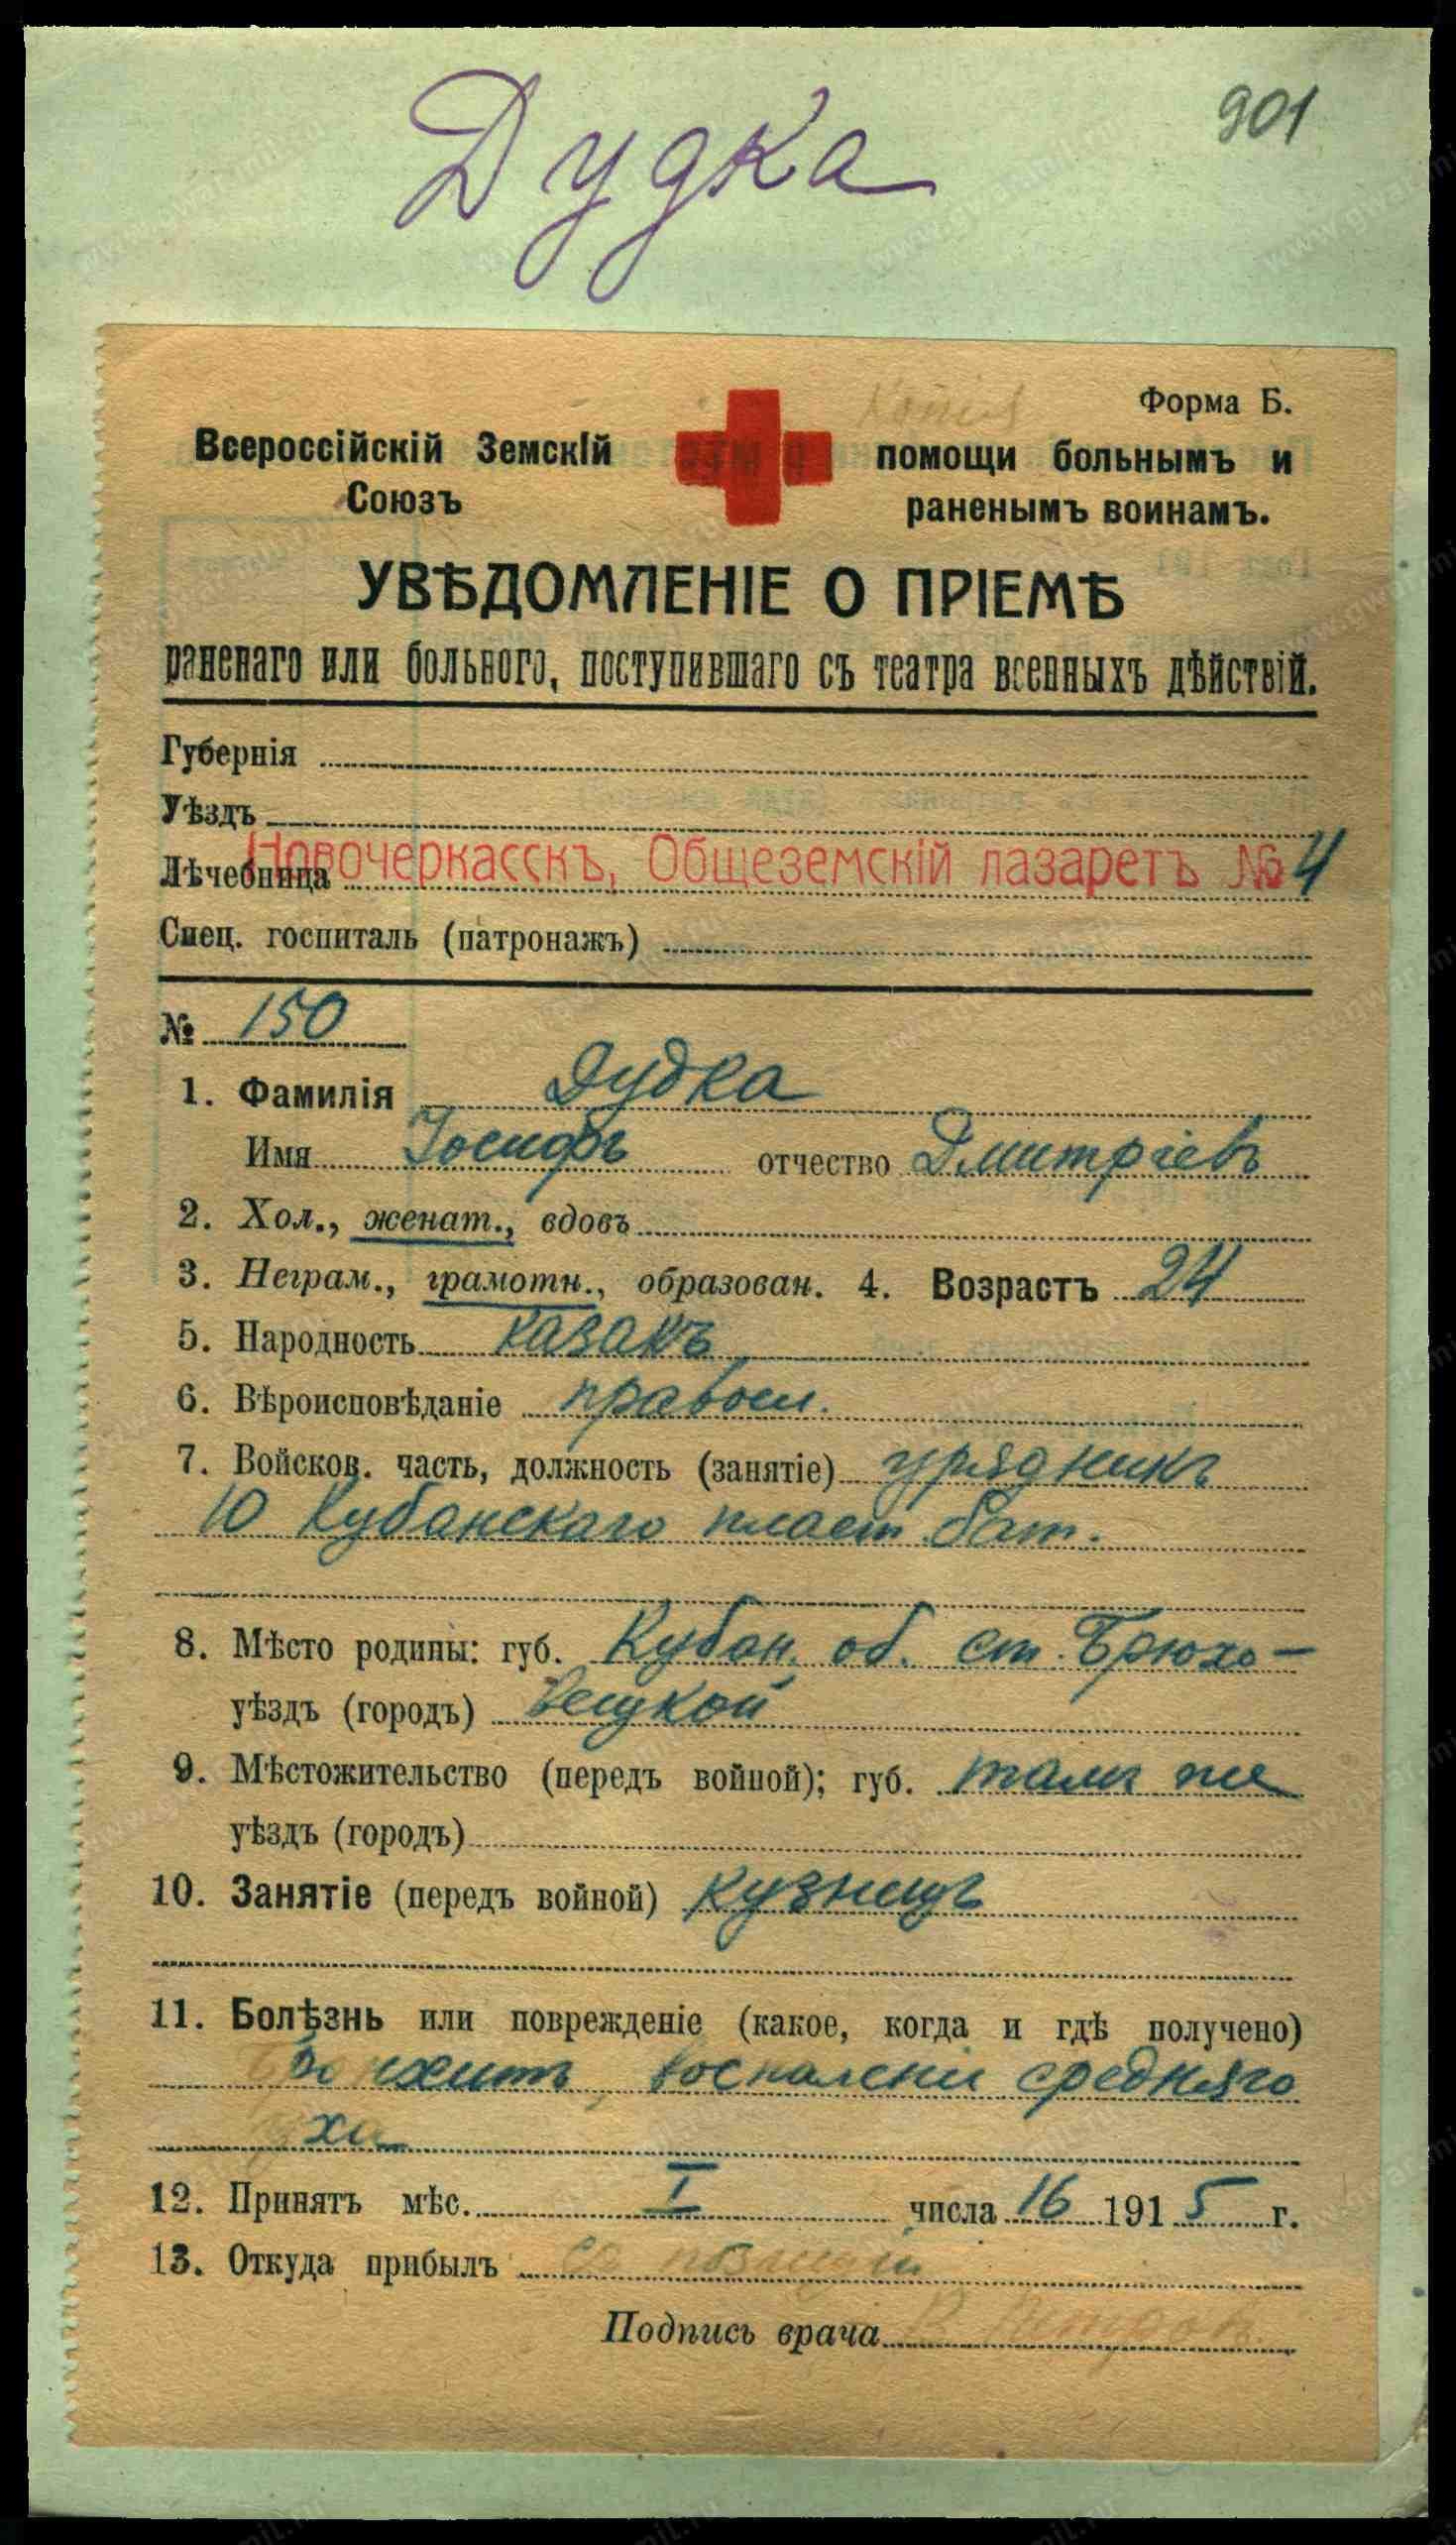 901
Дудка
Форма Б.
Всероссійскій Земскій помощи больнымъ и
Союзъ раненымъ воинамъ.
УВѢДОМЛЕНІЕ О ПРІЕМѢ
раненаго или больного, поступившаго съ театра военныхъ дѣйствій.
Губернія
Уѣздъ
Лѣчебница Новочеркасскъ, Общеземскій лазаретъ № 4
Спец. госпиталь (патронажъ)
№ 150
1. Фамилія Дудка
Имя Іосифъ отчество Дмитріевъ
2. Хол., женат., вдовъ
3. Неграм., грамотн., образован. 4. Возрастъ 24
5. Народность казакъ
6. Вѣроисповѣданіе правосл.
7. Войсков. часть, должность (занятіе) урядникъ
10 Кубанскаго пласт. бат.
8. Мѣсто родины: губ. Кубан. об. ст. Брюхо-
уѣздъ (городъ) вецкой
9. Мѣстожительство (передъ войной); губ. тамъ же
уѣздъ (городъ)
10. Занятіе (передъ войной) кузнецъ
11. Болѣзнь или поврежденіе (какое, когда и гдѣ получено)
Бронхитъ, воспаленіе средняго
уха
12. Принятъ мѣс. I числа 16 1915 г.
13. Откуда прибылъ съ позиціи
Подпись врача